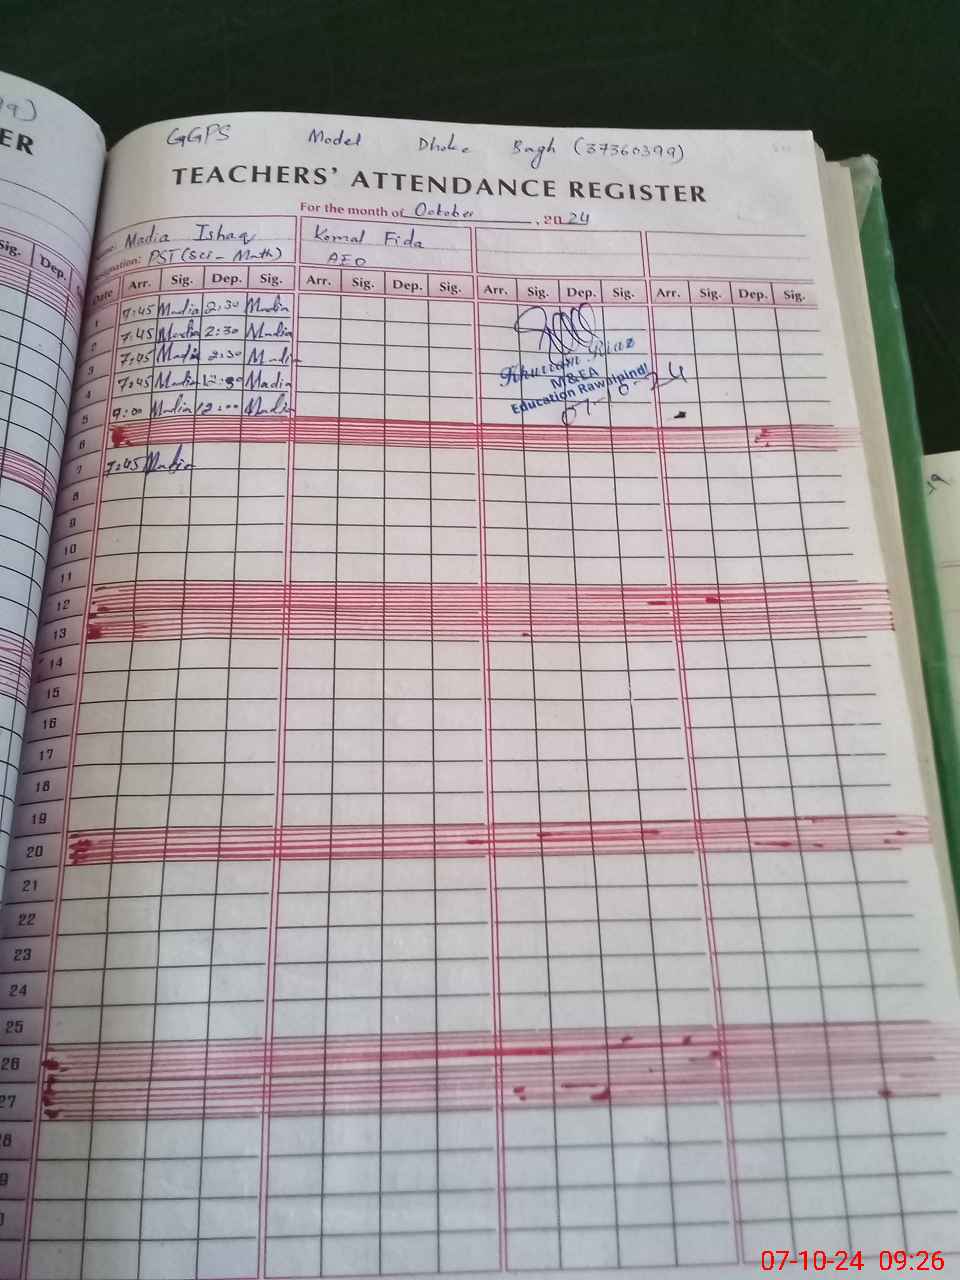 99)
ER
Sig. Dep.
GGPS Model Dhoke Bagh (37360399)
TEACHERS' ATTENDANCE REGISTER
For the month of October, 2024
Madia Ishaq Komal Fida
PST (Sci - Math) AEO
Date Arr. Sig. Dep. Sig. Arr. Sig. Dep. Sig. Arr. Sig. Dep. Sig. Arr. Sig. Dep. Sig.
1 7:45 Madia 2:30 Madia
2 7:45 Madia 2:30 Madia
3 7:45 Madia 2:30 Madia
4 7:45 Madia 12:30 Madia
5 9:00 Madia 12:00 Madia
Khurram Riaz
M&EA
Education Rawalpindi
07-10-24
6
7 7:45 Madia
8
9
10
11
12
13
14
15
16
17
18
19
20
21
22
23
24
25
26
27
07-10-24 09:26